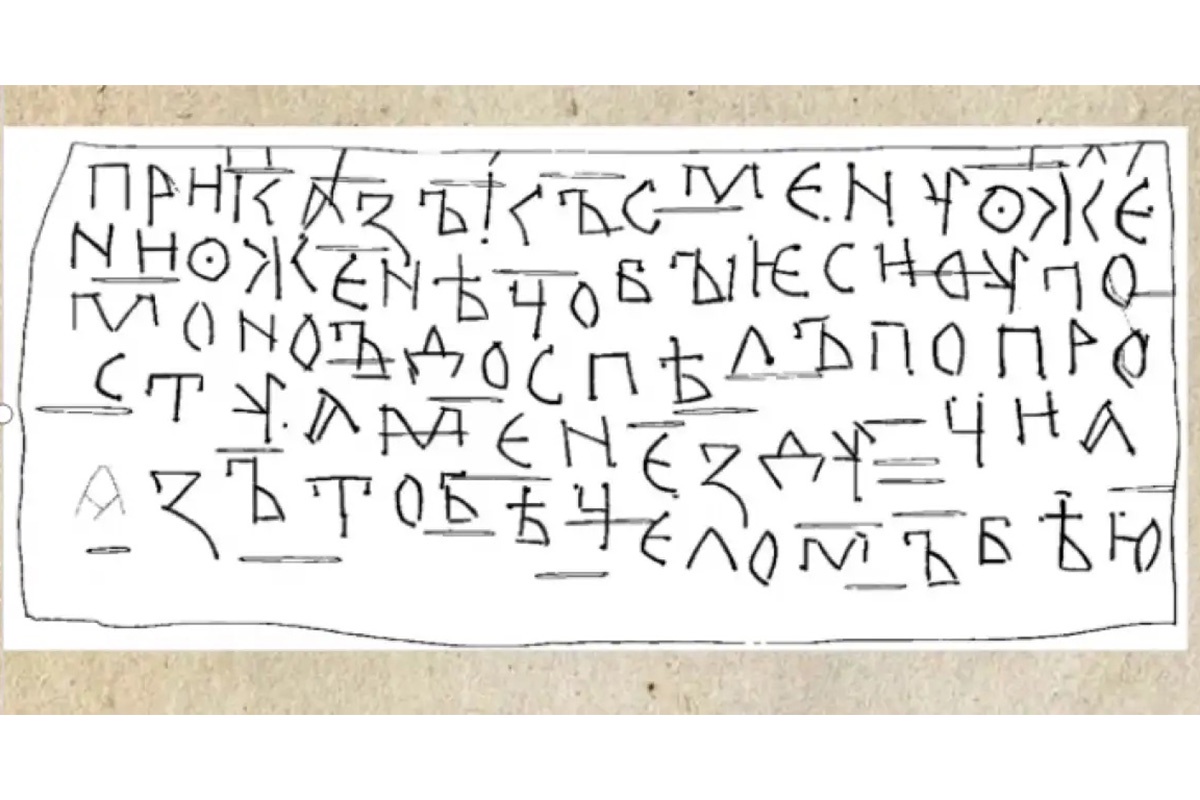 ПРНКАЗЪКЪСМЕNУОЖЕ
NНОЖЕNѢЧОБЪІѤСНОУПО
МОNОЪДОСПѢЛЪПОПРО
СТУАМЕNЕЗДУЧНА
АЗЪТОБѢЧЕЛОМЪБѢЮ